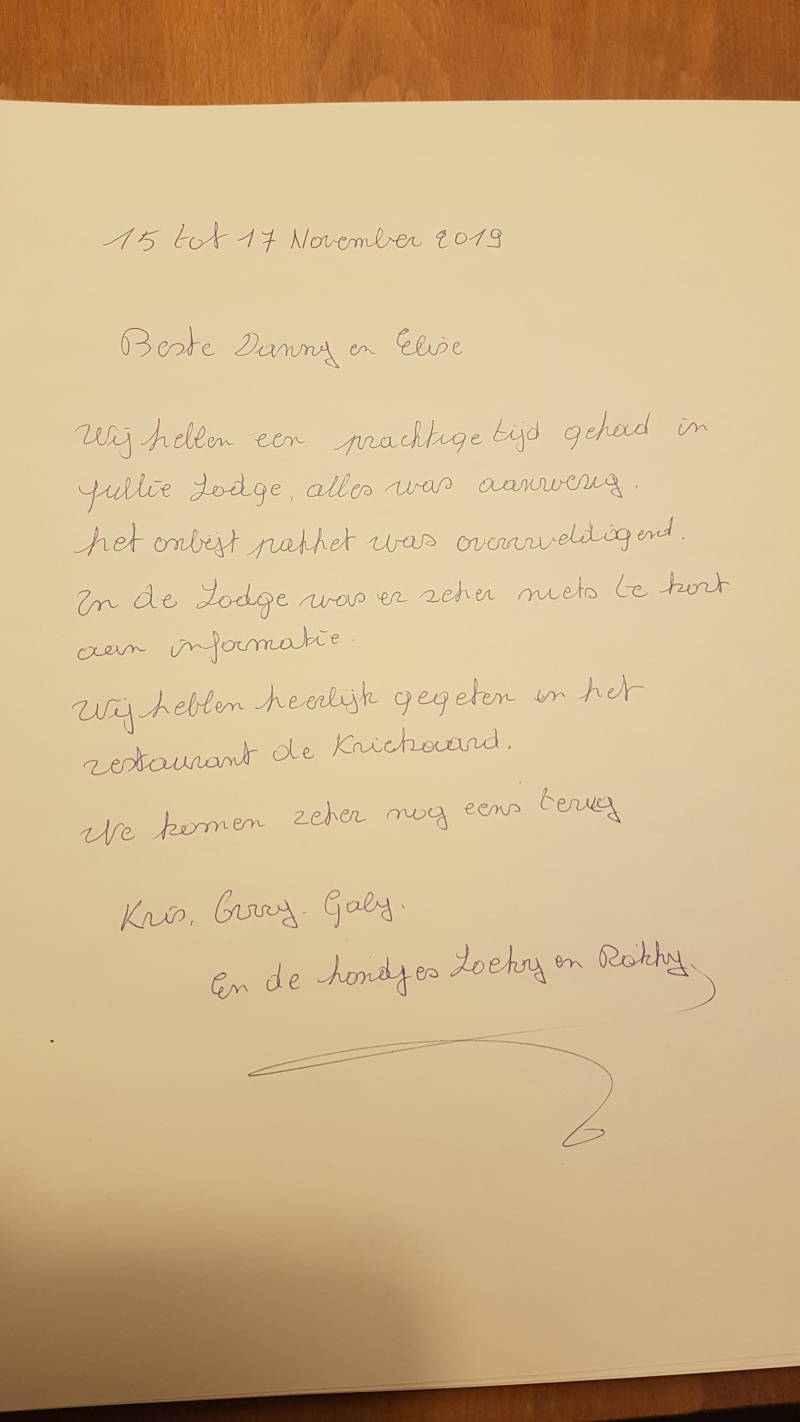 15 tot 17 November 2019
Beste Danny en Elise
Wij hebben een prachtige tijd gehad in
jullie Lodge, alles was aanwezig.
het onbijt pakket was overweldigend.
In de Lodge was er zeker niets te kort
aan informatie.
Wij hebben heerlijk gegeten in het
restaurant de Krickaard.
We komen zeker nog eens terug
Kris, Gaby.
En de hondjes Loeky en Rokky